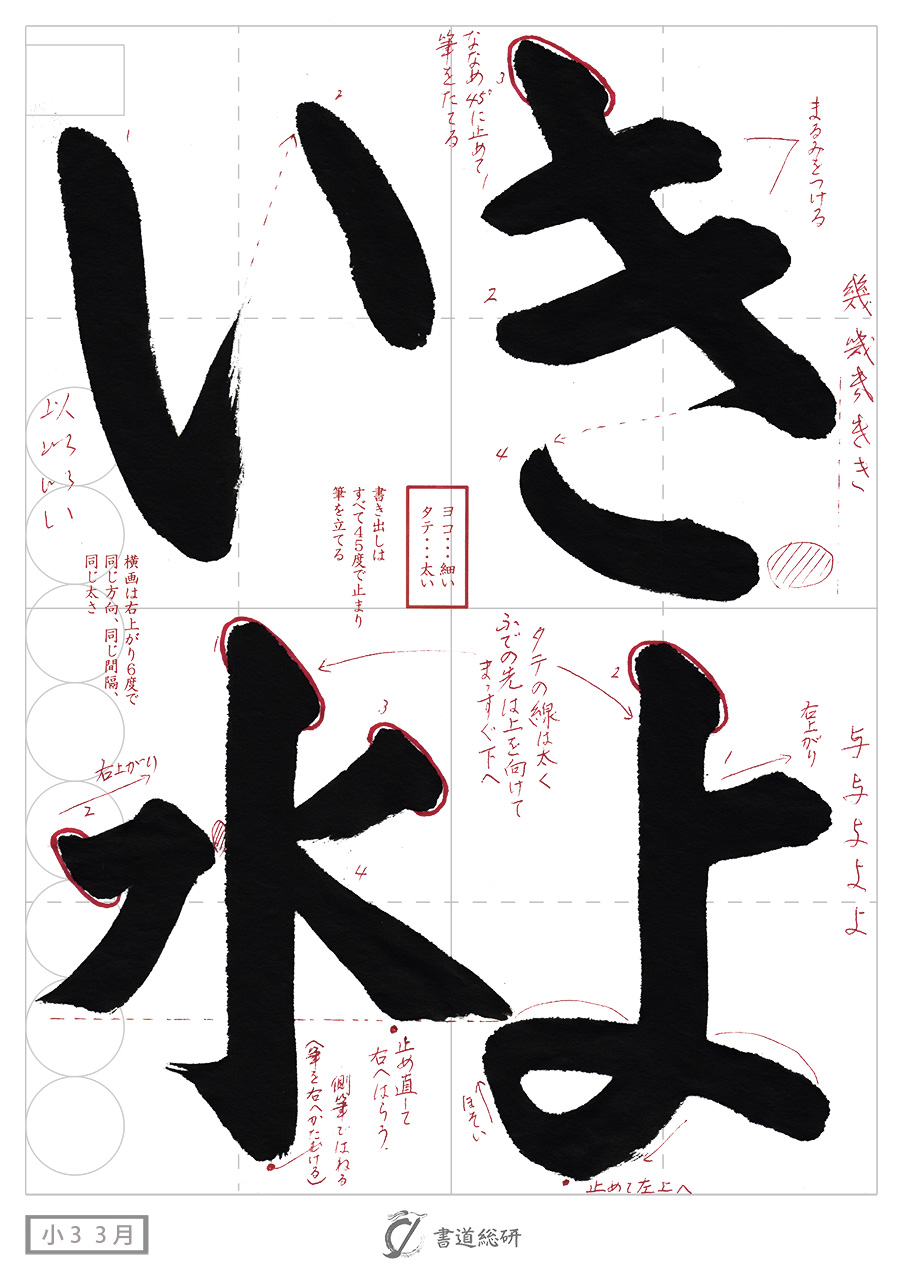 きよ
い水
まるみをつける
幾
幾
き
き
き
3
ななめ45°に止めて
筆をたてる
2
4
1
2
以
以
い
い
ヨコ・・・細い
タテ・・・太い
書き出しは
すべて45度で止まり
筆を立てる
横画は右上がり6度で
同じ方向、同じ間隔、
同じ太さ
与
与
与
よ
よ
右上がり
1
2
タテの線は太く
ふでの先は上を向けて
まっすぐ下へ
ほそい
止めて左上へ
1
3
右上がり
2
4
止め直して
右へはらう
側筆ではねる
(筆を右へかたむける)
小3 3月
書道総研